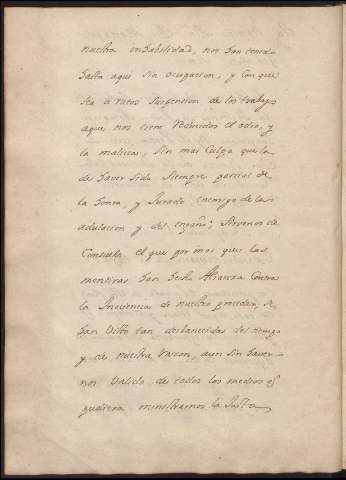 nuestra inhabilidad, nos han tenido
hasta aqui sin ocupacion, y con que
sea a ratos suspension de los trabajos
aque nos tiene reducidos el odio, y
la malicia, sin mas culpa que la
de haver sido siempre parcial de
la honra, y jurado enemigo de la
adulacion y del engaño; sirvenos de
Consuelo el que por mas que las
mentiras han hecho Alianza contra
la Inocencia de nuestro proceder, se
han visto tan desbanecidas del tiempo
y de nuestra razon, aun sin haver
nos valido de todos los medios q
pudiera ministrarnos la justa